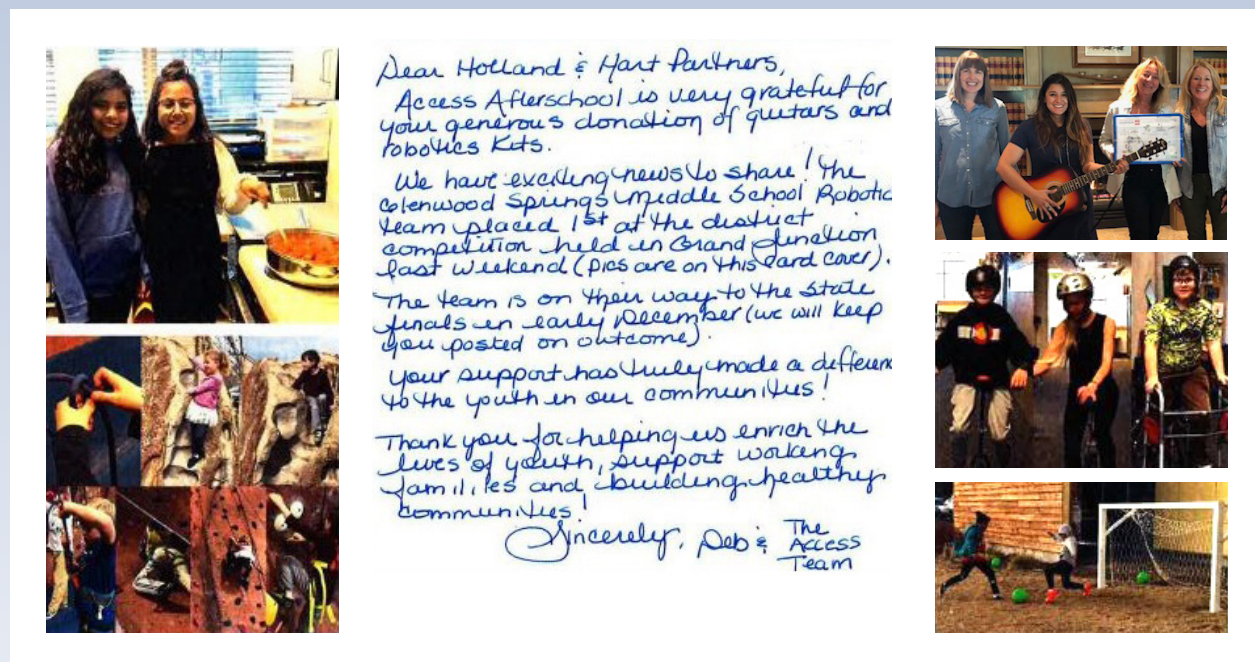 Dear Holland & Hart Partners,
Access Afterschool is very grateful for
your generous donation of guitars and
robotics kits.
We have exciting news to share! The
Glenwood Springs Middle School Robotic
team placed 1st at the district
competition held in Grand Junction
last weekend (pics are on this card cover).
The team is on their way to the state
finals in early December (we will keep
you posted on outcome).
Your support has truly made a differen
to the youth in our communities!
Thank you for helping us enrich the
lives of youth, support working
families and, building healthy
communities!
Sincerely, Deb & The
Access
Team